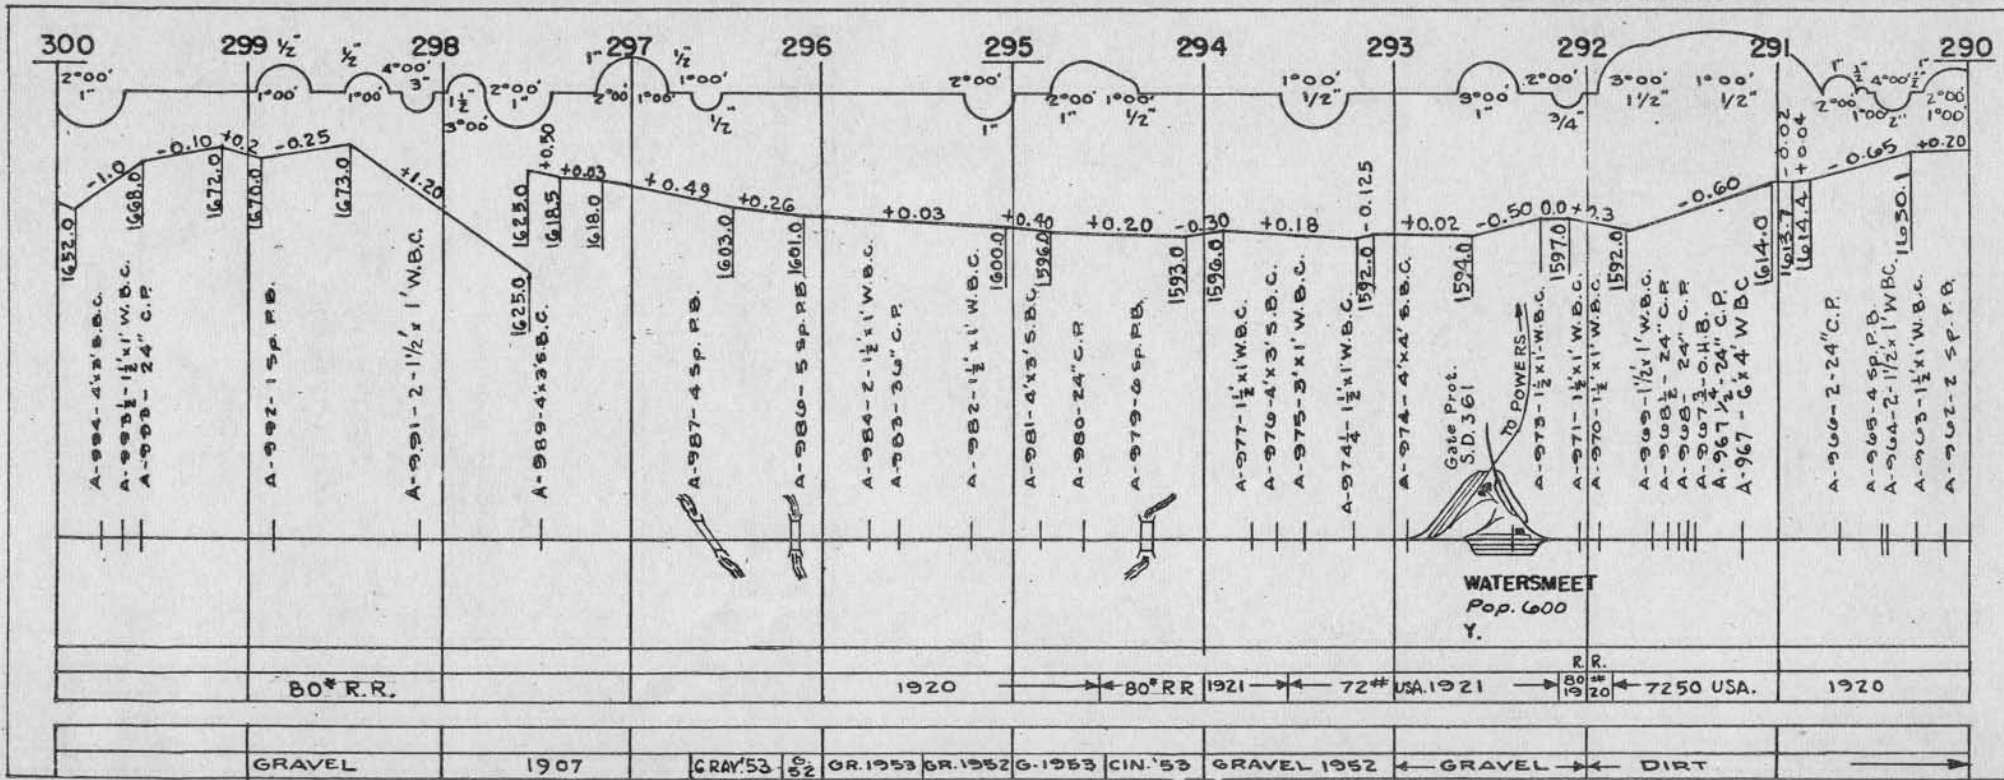 300 299 298 297 296 295 294 293 292 291 290
2°00' 1"
1/2" 1°00'
1/2" 1°00'
4°00' 3"
1 1/2" 3°00'
2°00' 1"
1" 2°00'
1/2" 1°00'
1°00' 1/2
2°00' 1"
2°00' 1"
1°00' 1/2"
1°00' 1/2"
3°00' 1"
2°00' 3/4"
3°00' 1 1/2"
1°00' 1/2"
1" 2°00'
1/2" 1°00'
4°00' 2"
1/2" 1°00'
1" 2°00'
-1.0 -0.10 +0.2 -0.25 +1.20 +0.50 +0.03 +0.49 +0.26 +0.03 +0.40 +0.20 -0.30 +0.18 -0.125 +0.02 -0.50 0.0 +.3 -0.60 -0.02 +0.04 -0.65 +0.20
1652.0 1668.0 1672.0 1670.0 1673.0 1625.0 1625.0 1618.5 1618.0 1603.0 1601.0 1600.0 1596.0 1593.0 1596.0 1592.0 1594.0 1597.0 1592.0 1614.0 1613.7 1614.4 1630.1
A-994-4'x3' S.B.C.
A-993 1/2-1 1/2'x1' W.B.C.
A-993-24" C.P.
A-992-1 Sp. P.B.
A-991-2-1 1/2' x 1' W.B.C.
A-989-4'x3' S.B.C.
A-987-4 Sp. P.B.
A-986-5 Sp. P.B.
A-984-2-1 1/2'x1' W.B.C.
A-983-36" C.P.
A-982-1 1/2'x1' W.B.C.
A-981-4'x3' S.B.C.
A-980-24" C.P.
A-979-6 Sp. P.B.
A-977-1 1/2'x1' W.B.C.
A-976-4'x3' S.B.C.
A-975-3'x1' W.B.C.
A-974 1/4-1 1/2'x1' W.B.C.
A-974-4'x4' S.B.C.
Gate Prot.
S.D. 361
TO POWERS
A-973-1 1/2'x1' W.B.C.
A-971-1 1/2'x1' W.B.C.
A-970-1 1/2'x1' W.B.C.
A-969-1 1/2'x1' W.B.C.
A-968 1/2-24" C.P.
A-968-24" C.P.
A-967 3/4-O.H.B.
A-967 1/2-24" C.P.
A-967-6'x4' W B C
A-966-2-24" C.P.
A-965-4 Sp. P.B.
A-964-2-1 1/2'x1' W.B.C.
A-963-1 1/2'x1' W.B.C.
A-962-2 Sp. P.B.
WATERSMEET
Pop. 600
Y.
80# R.R. 1920 80# RR 1921 72# USA. 1921 R.R. 80# 1920 7250 USA. 1920
GRAVEL 1907 GRAV.'53 G. 52 GR. 1953 GR. 1952 G-1953 CIN.'53 GRAVEL 1952 GRAVEL DIRT